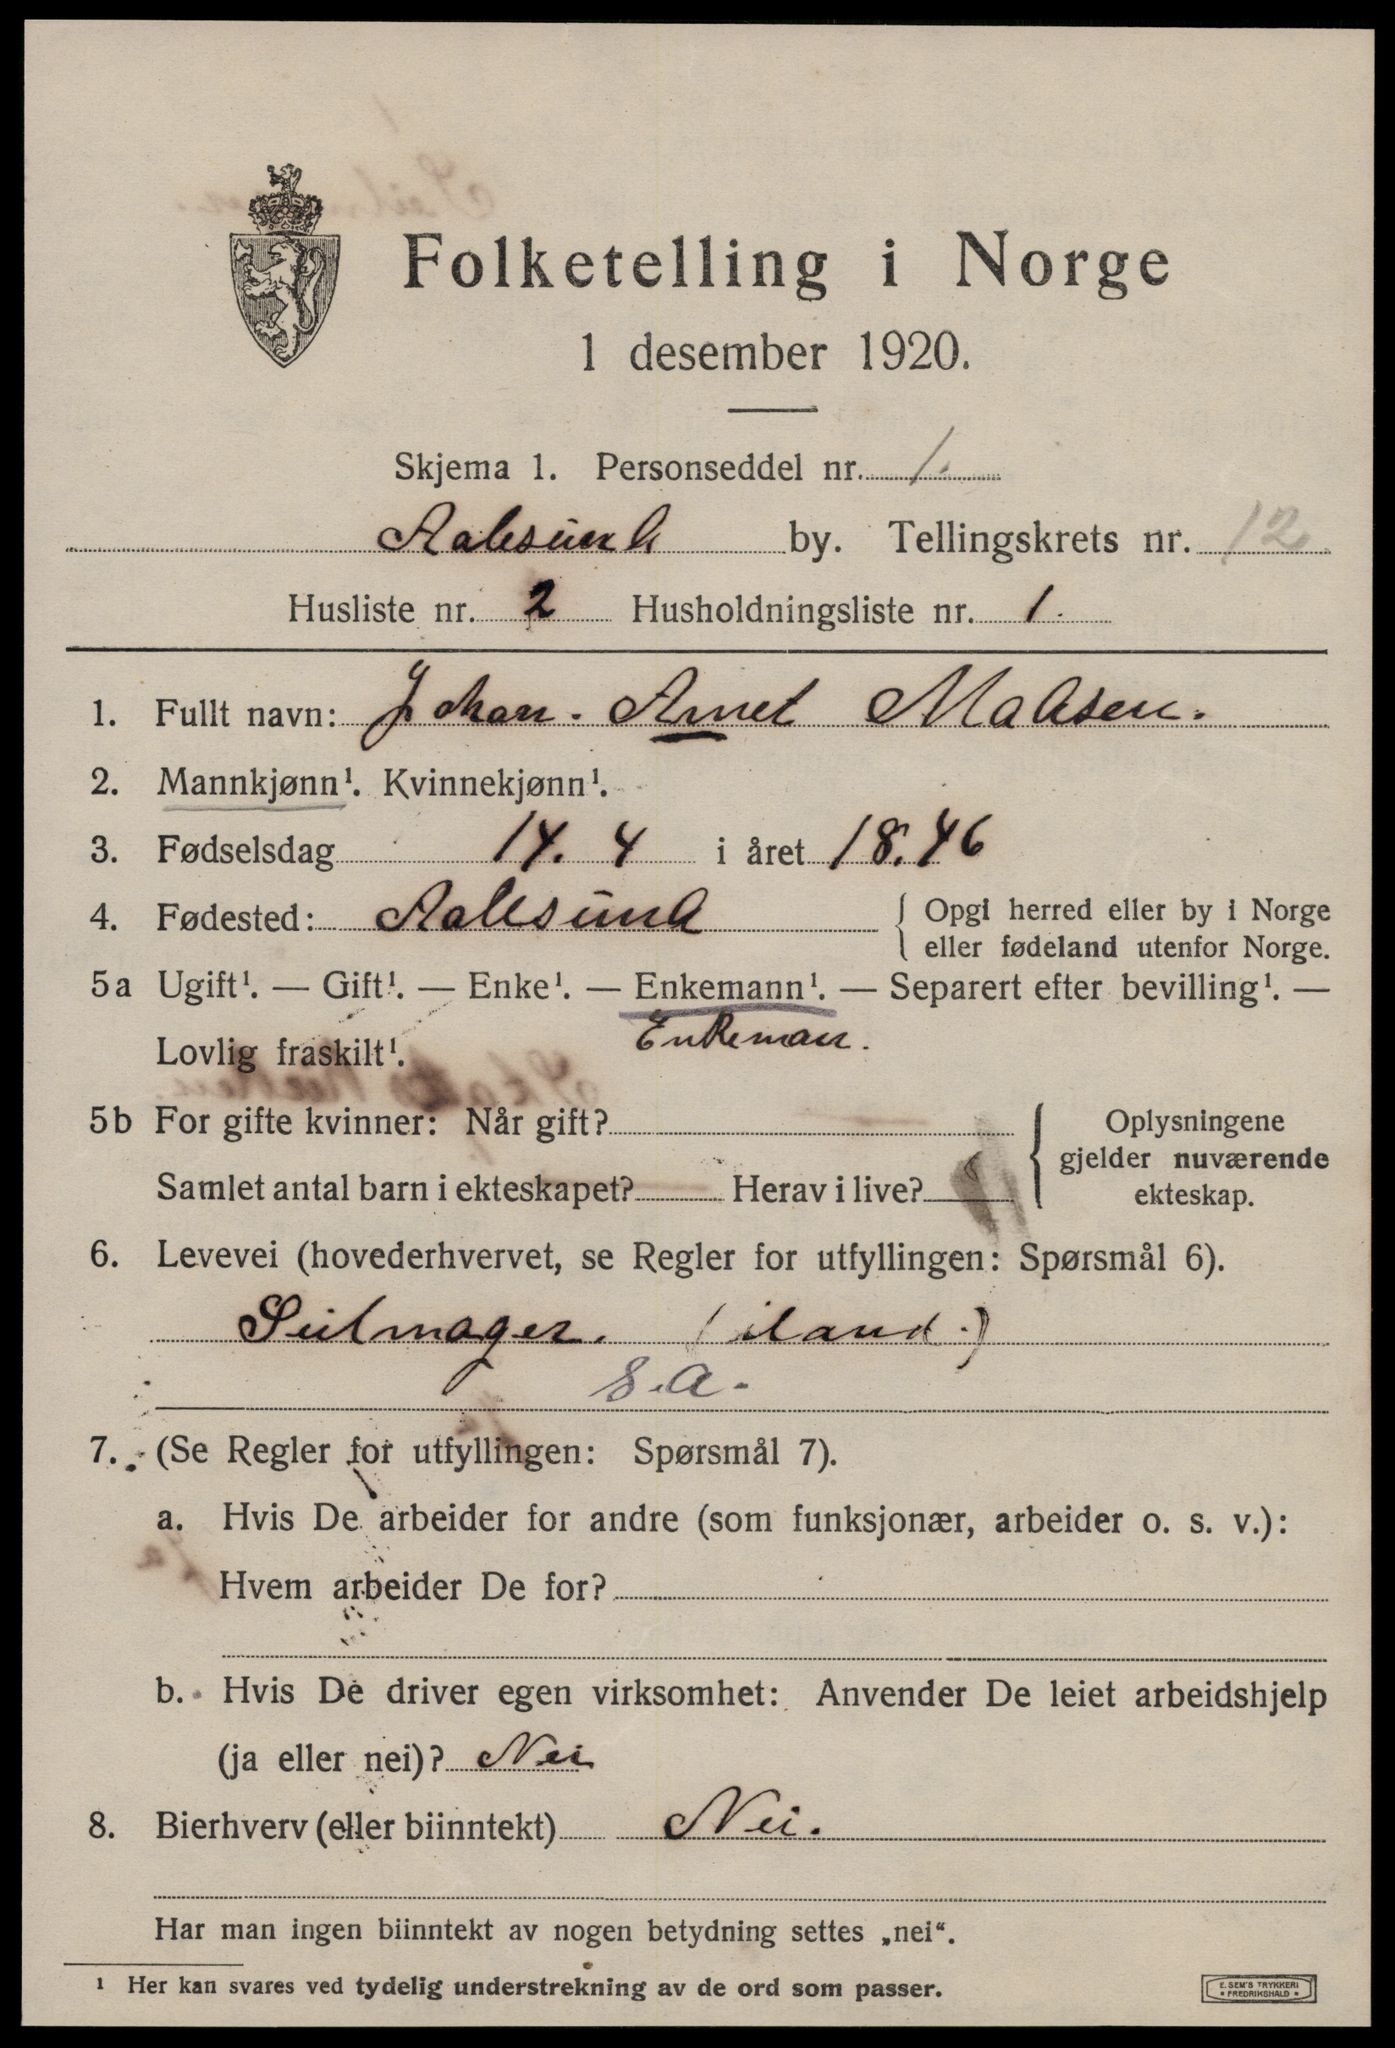 Folketelling i Norge
1 desember 1920.
Skjema 1. Personseddel nr. 1.
Aalesund by. Tellingskrets nr. 12
Husliste nr. 2 Husholdningsliste nr. 1.
1. Fullt navn: Johan. Arnet Madsen.
2. Mannkjønn¹. Kvinnekjønn¹.
3. Fødselsdag 14. 4 i året 18.46
4. Fødested: Aalesund { Opgi herred eller by i Norge
eller fødeland utenfor Norge.
5a Ugift¹. — Gift¹. — Enke¹. — Enkemann¹. — Separert efter bevilling¹. —
Lovlig fraskilt¹. Enkeman.
5b For gifte kvinner: Når gift? — { Oplysningene
gjelder nuværende
Samlet antal barn i ekteskapet? — Herav i live?
ekteskap.
6. Levevei (hovederhvervet, se Regler for utfyllingen: Spørsmål 6).
Seilmager. (iland.)
S.A.
7. (Se Regler for utfyllingen: Spørsmål 7).
a. Hvis De arbeider for andre (som funksjonær, arbeider o. s. v.):
Hvem arbeider De for?
b. Hvis De driver egen virksomhet: Anvender De leiet arbeidshjelp
(ja eller nei)? Nei
8. Bierhverv (eller biinntekt) Nei.
Har man ingen biinntekt av nogen betydning settes „nei“.
¹ Her kan svares ved tydelig understrekning av de ord som passer.
E. SEM'S TRYKKERI
• FREDRIKSHALD •